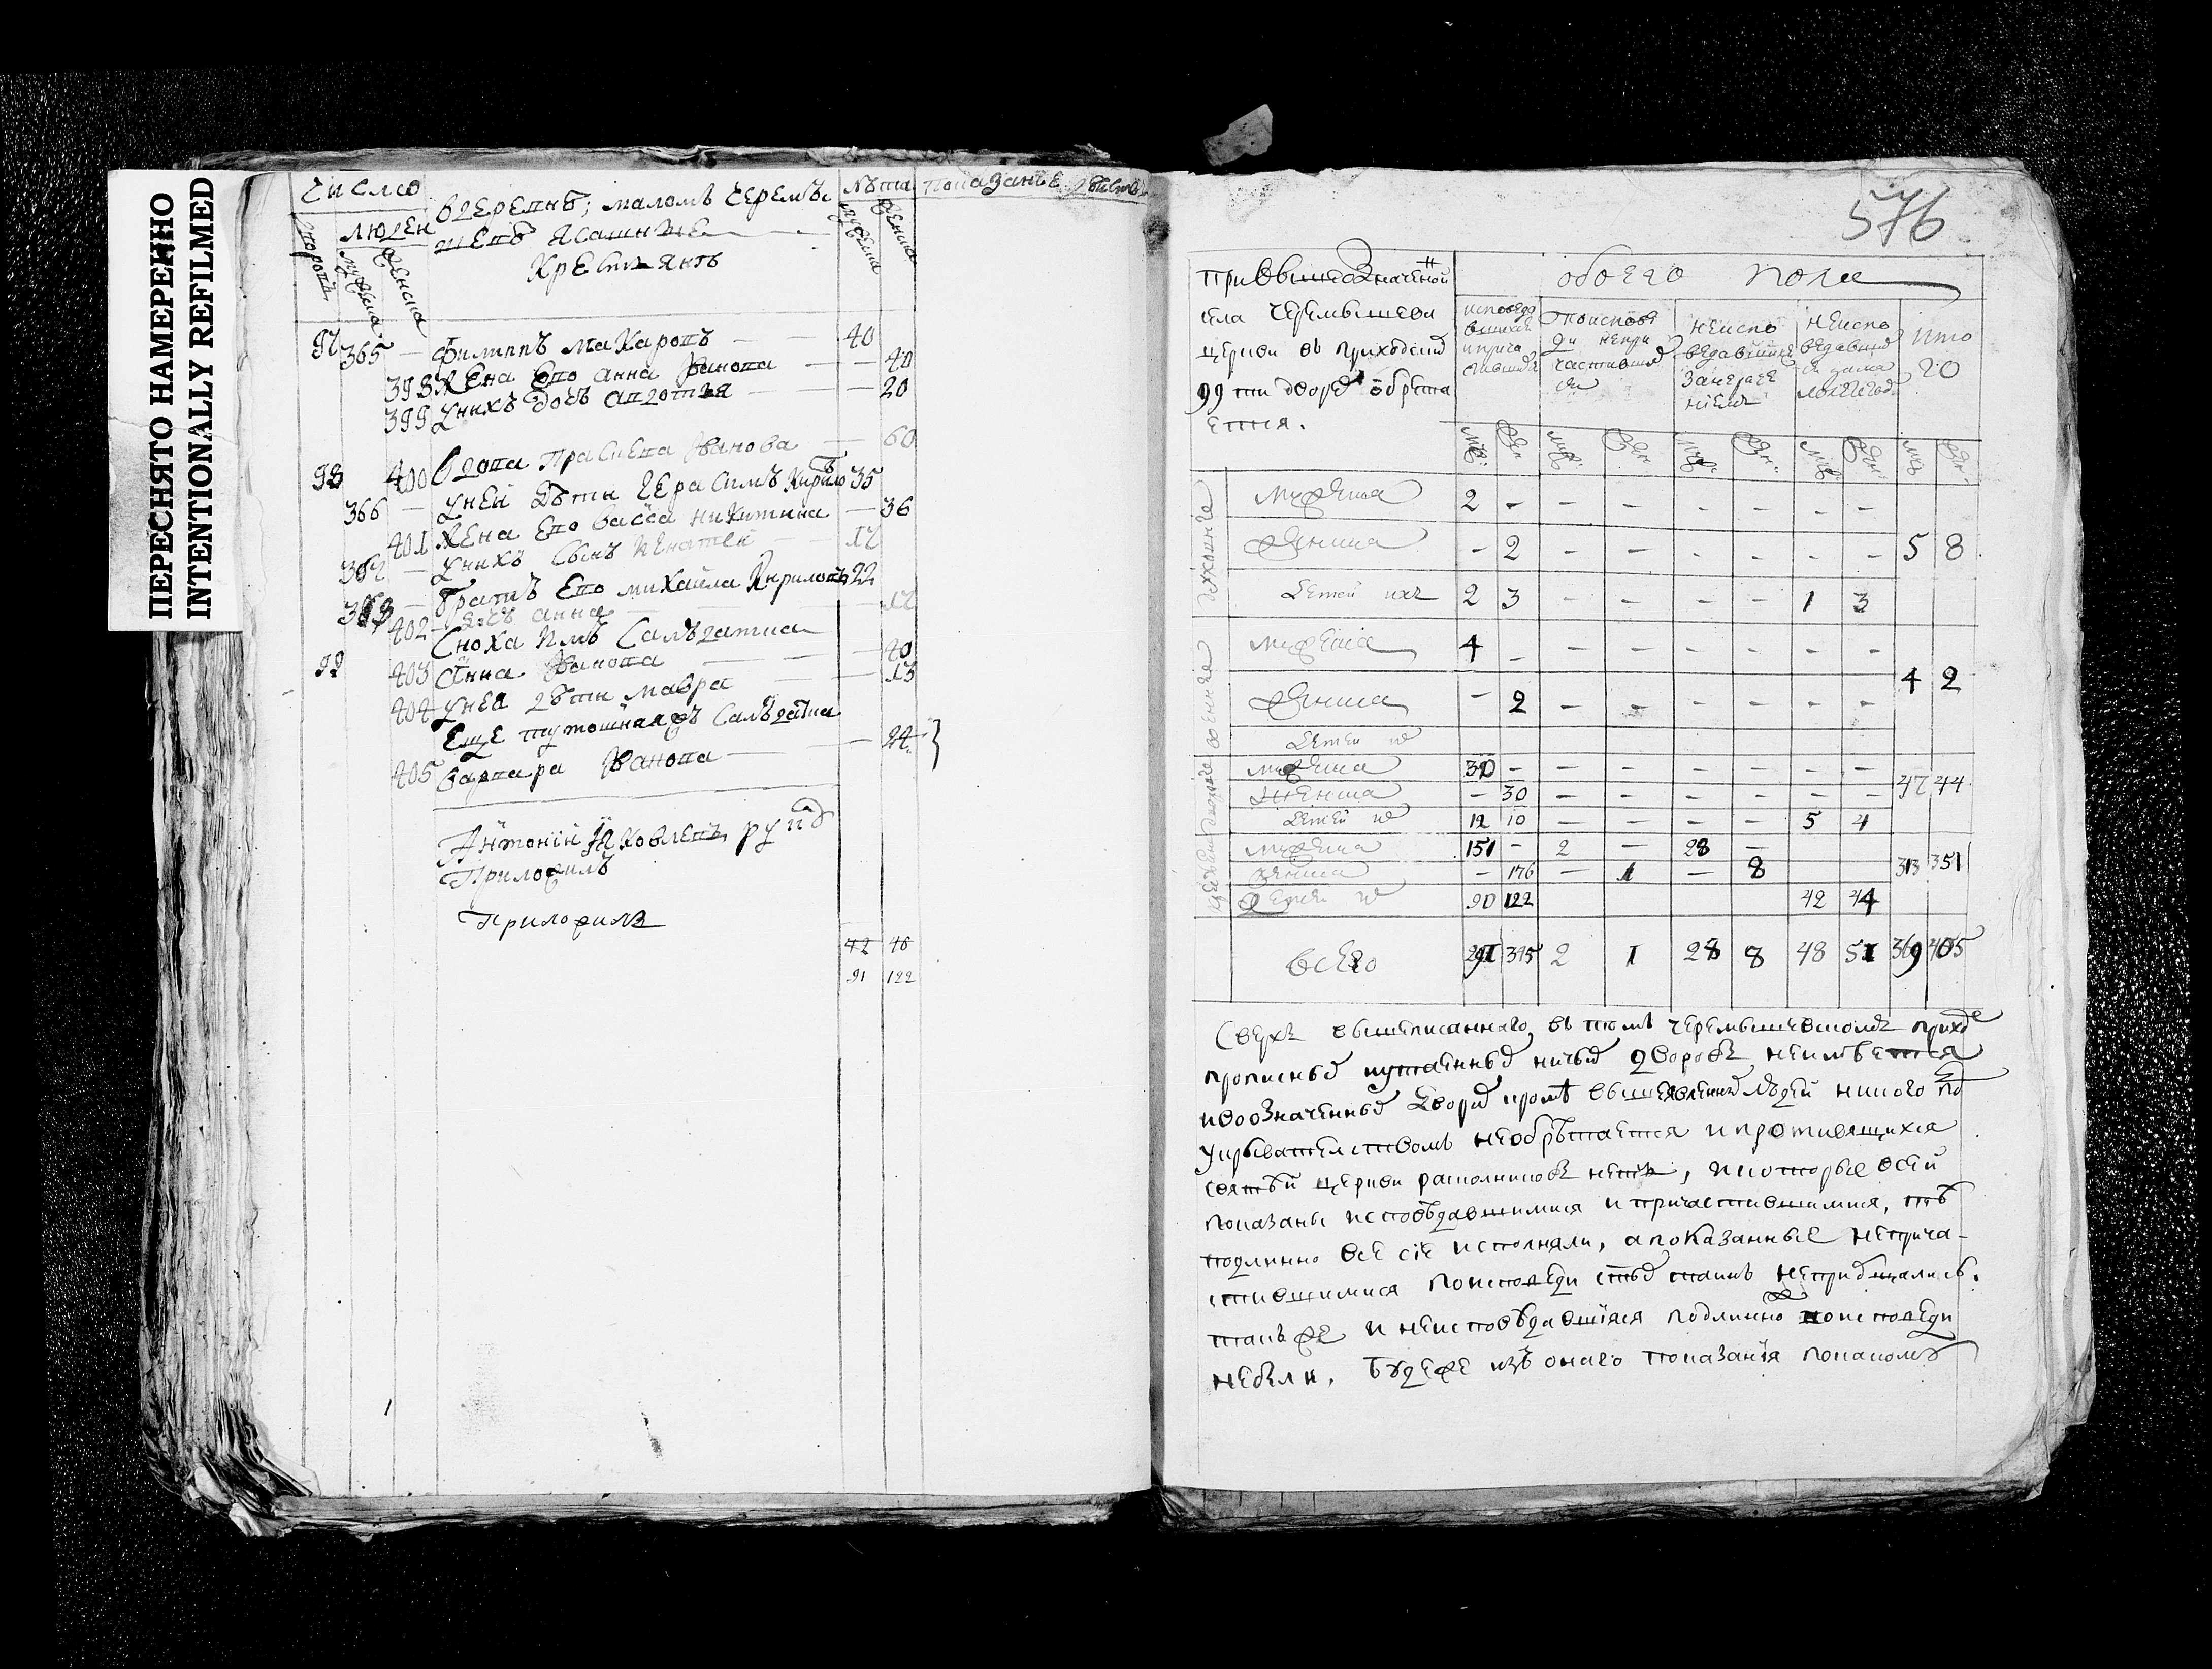 ПЕРЕСНЯТО НАМЕРЕННО
INTENTIONALLY REFILMED
число
людей
мужеска
женска
въ деревнѣ маломъ Черемы
шевѣ ясашные
Крестьянѣ
лѣта
показанїе
97 365 — Филиппъ Макаровъ — 40
398 Жена Его Анна Иванова — 40
399 Унихъ дочь Авдотья — 20
98 400 Вдова Прасковья Иванова — 60
366 — Уней Дѣти Герасимъ Кирило 35
401 Жена Его Васса Никитина — 36
367 — Унихъ Сынъ — 17
368 — Братъ Его Михайла Кириловъ 22
402 Анна — 17
Сноха Имъ Салъдатка
99 403 Анна Иванова — 40
404 Унея дѣти Мавра — 13
Еще тутошная жъ Салъдатка
405 Варвара Иванова — 24
Антоній Яковлевъ руку
Приложилъ
Приложилъ
42 46
91 122
576
При вышеозначенной
села Черемышева
церкви въ приходскихъ
99 ти дворехъ обрета
ется.
обоего пола
исповедо
вшихся
и прича
стившихся
По испове
ди непри
частивших
ся
неиспо
ведавшихся
неиспо
ведавшихся
за мало
летством
Ито
го
муж: жен: муж: жен: муж: жен: муж: жен: муж жен:
духовные
мужеска 2 - - - - - - -
женска - 2 - - - - - - 5 8
Детей ихъ 2 3 - - - - 1 3
военные
мужеска 4 - - - - - - -
женска - 2 - - - - - - 4 2
Детей их
мужеска 30 - - - - - - -
женска - 30 - - - - - - 47 44
Детей их 12 10 - - - - 5 4
мужеска 151 - 2 - 28 -
женска - 176 - 1 - 8 313 351
Детей их 90 122 42 44
всего 291 345 2 1 28 8 48 51 369 405
Сверхъ вышеписаннаго въ томъ Черемышевскомъ приходе
прописныхъ иутаенныхъ ничьихъ дворовъ неимѣется
ивоозначенныхъ дворехъ кромѣ вышеявленныхъ людей никого подъ
укрывателствомъ необрѣтается ипротивящихся
святѣй церкви расколниковъ нетъ, икоторые всей
показаны исповѣдавшимися и причастившимися, тѣ
подлинно все сіе исполняли, апоказанные неприча-
стившимися поисповеди стыхъ таинъ непріобщались.
такъ же и неисповѣдавшїяся подлинно поисповеди
небыли, Будеже изъ онаго показанїя покакомъ